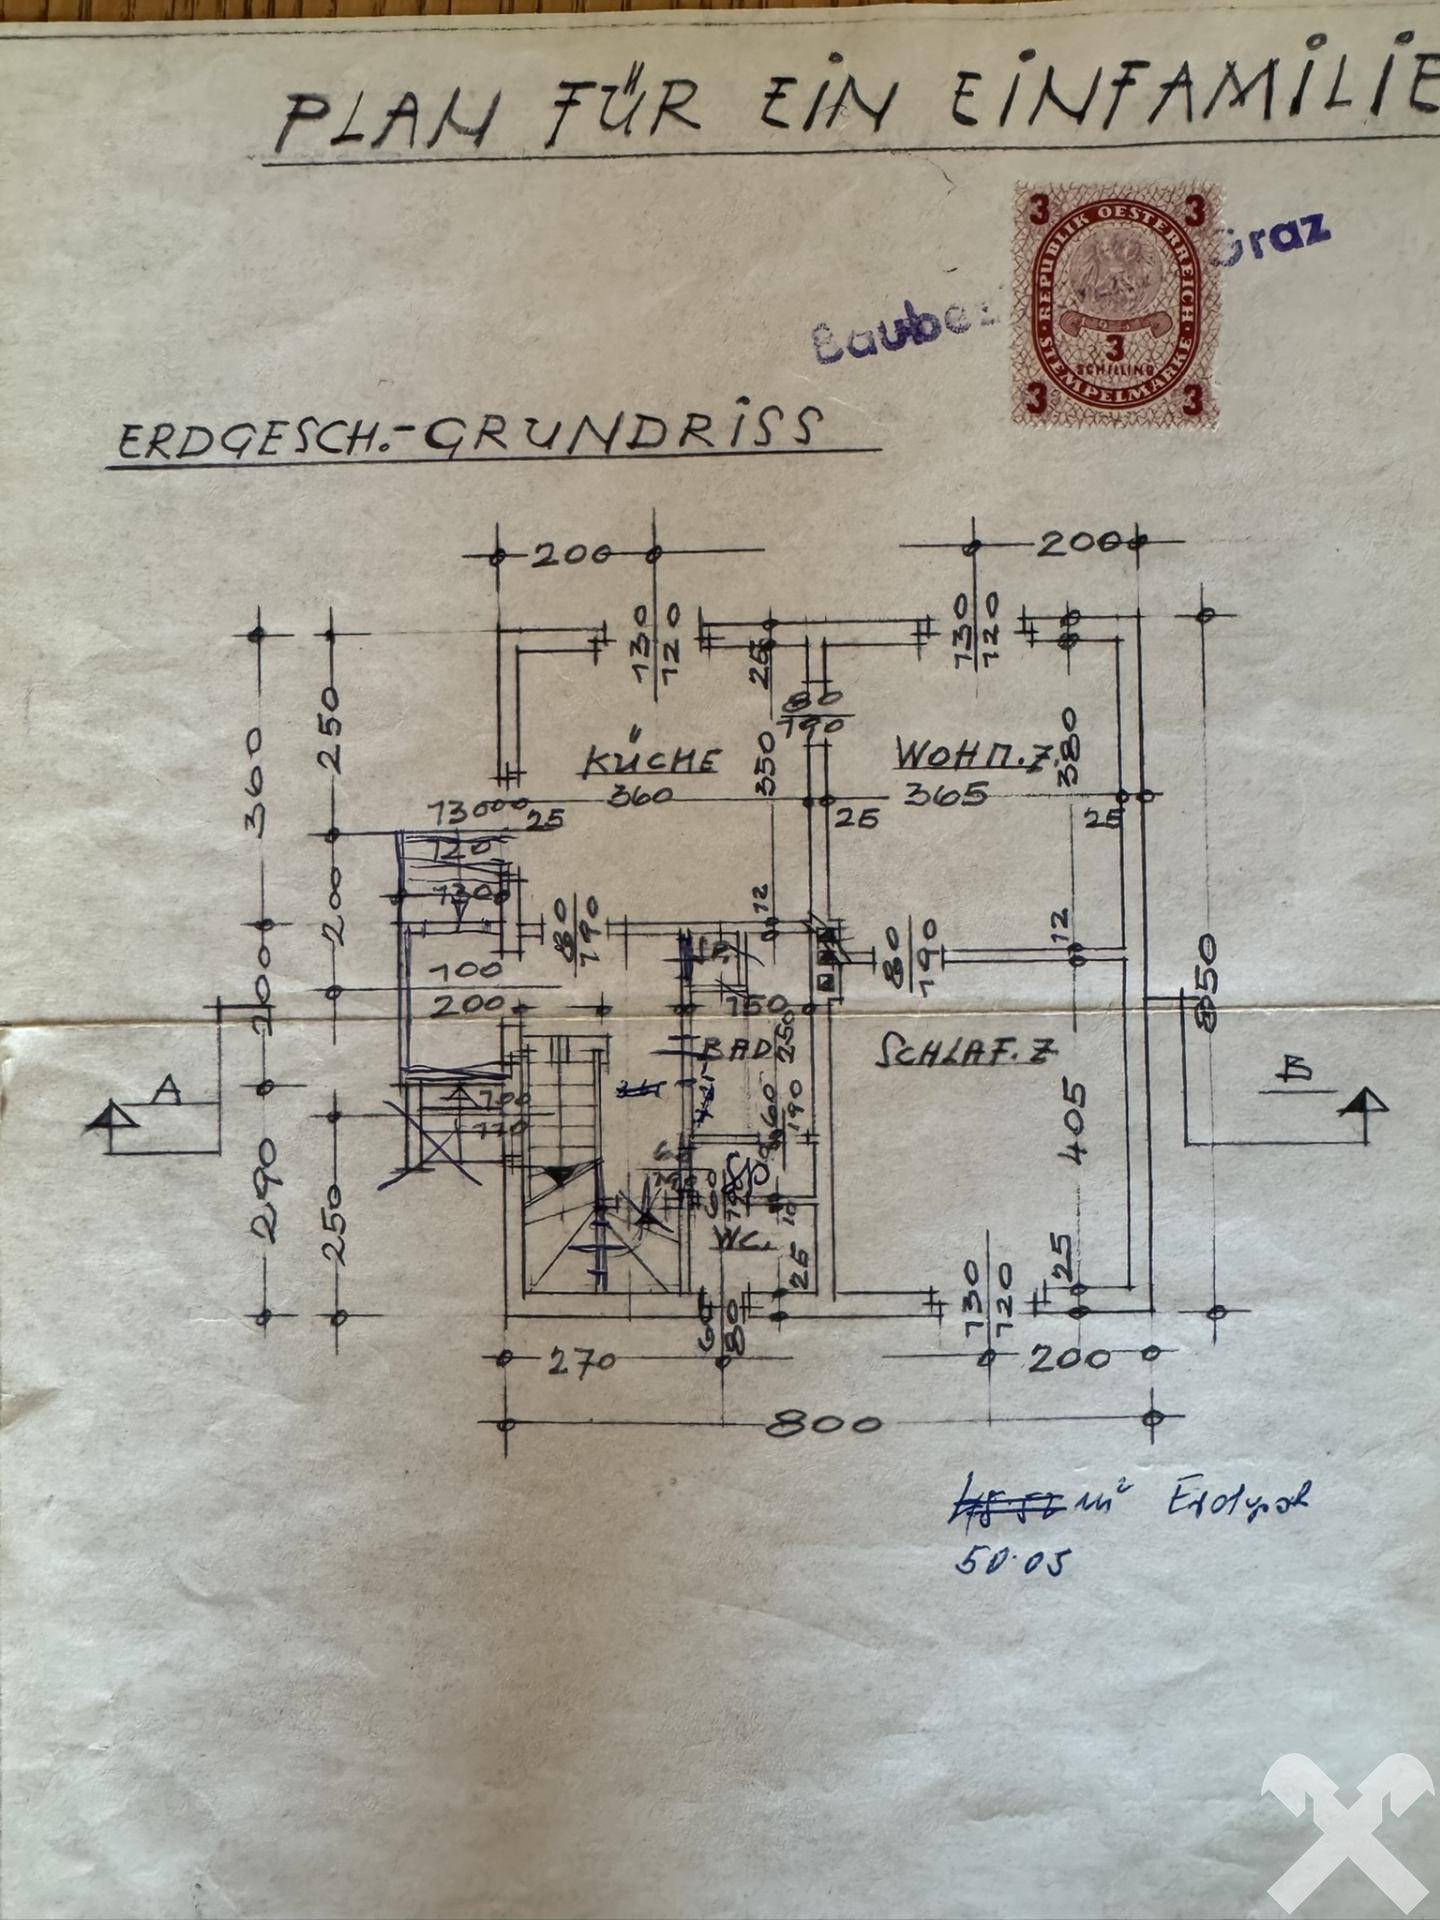 PLAN FÜR EIN EINFAMILIE
3 3
REPUBLIK OESTERREICH
STEMPELMARKE
3
SCHILLING
3 3
Graz
ERDGESCH.-GRUNDRISS
200 200
130
120
130
120
25
80
190
360
250
KÜCHE
350
WOHN.Z.
380
360
365
25
25
25
130
120
130
200
12
12
80
190
80
190
100
200
200
150
850
BAD
250
SCHLAF.Z
A
B
60
190
405
290
250
WC.
10
25
25
130
120
60
80
270
200
800
m² Erdgesch
50.05